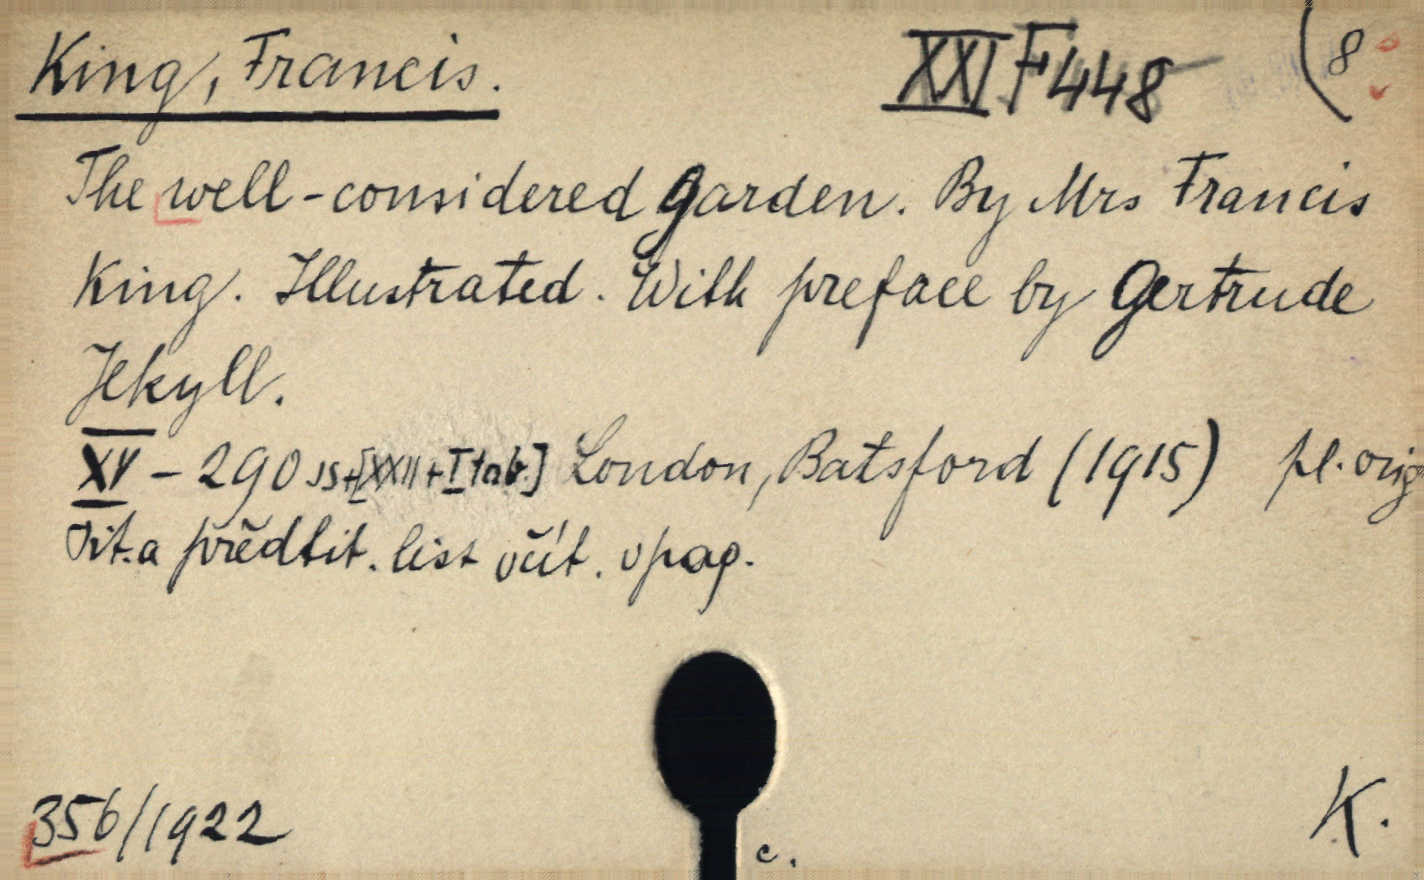 King, Francis.
XXI F 448
(8
The well-considered garden. By Mrs Francis
King. Illustrated. With preface by Gertrude
Jekyll.
XV - 290 ss+[XXII + I tab.] London, Batsford (1915) pl. orig
Tit. a předtit. list včít. v pag.
356/1922
K.
c.